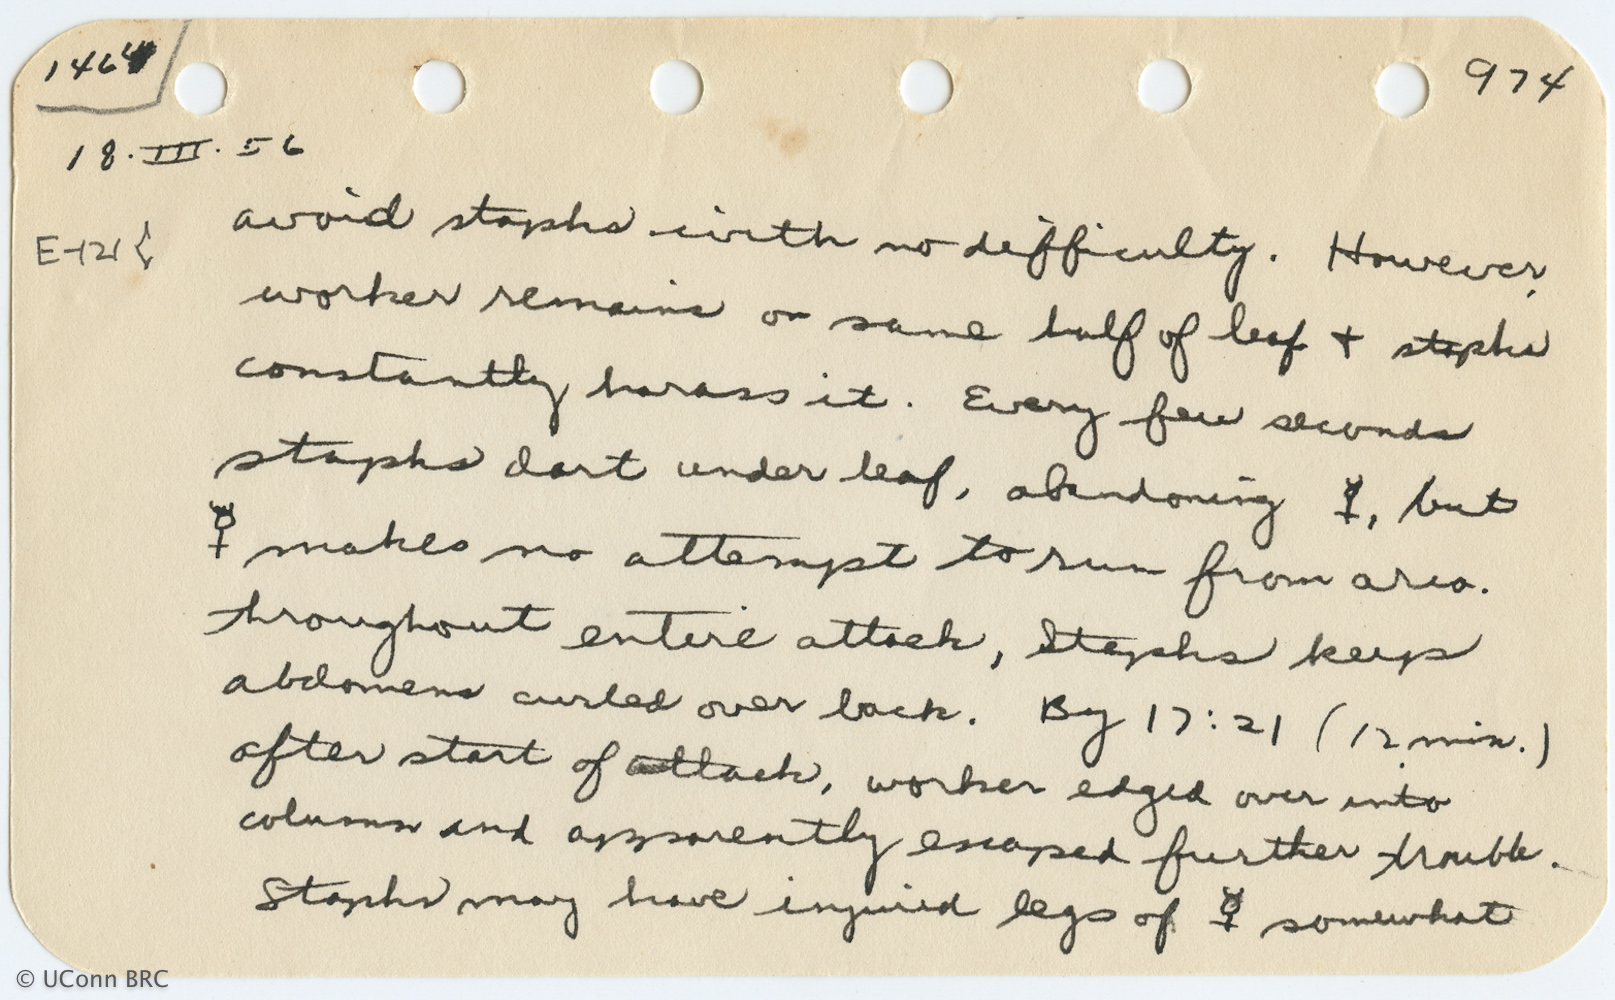 1464
974
18.III.56
E-121{
avoid staphs with no difficulty. However,
worker remains on same half of leaf + staphs
constantly harass it. Every few seconds
staphs dart under leaf, abandoning ☿, but
☿ makes no attempt to run from area.
Throughout entire attack, Staphs keep
abdomens curled over back. By 17:21 (12 min.)
after start of attack, worker edged over into
column and apparently escaped further trouble.
Staphs may have injured legs of ☿ somewhat
© UConn BRC